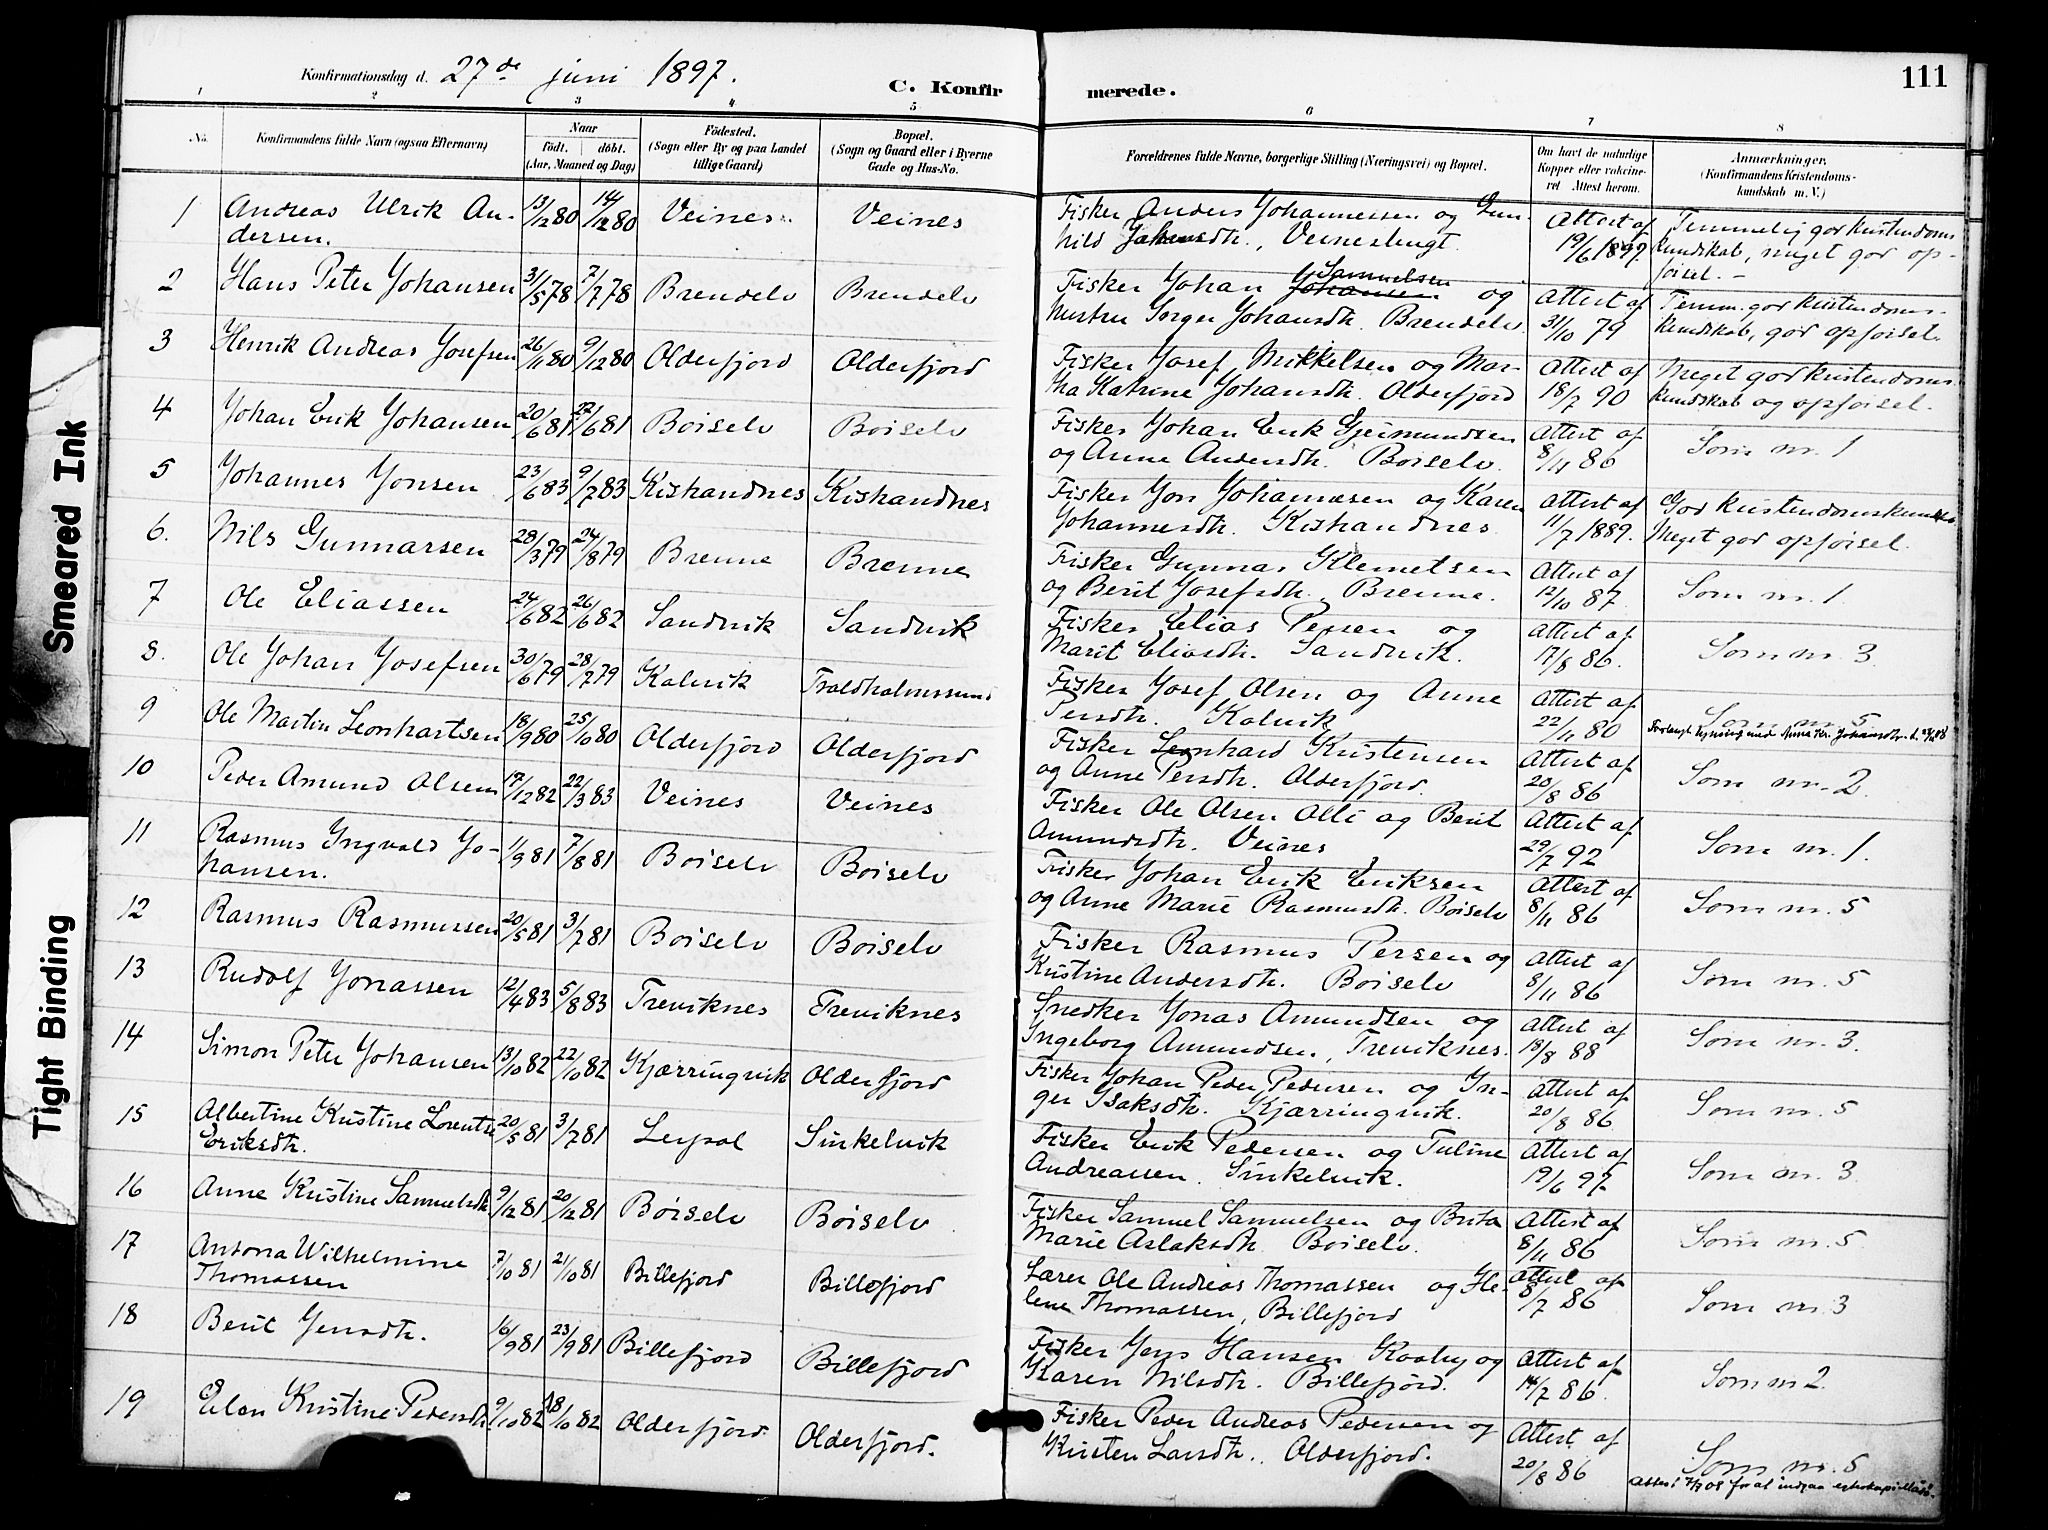 Konfirmationsdag d. 27de juni 1897.
C. Konfirmerede.
111
1 2 3 4 5 6 7 8
No.
Konfirmandens fulde Navn (ogsaa Efternavn)
Naar
født. døbt.
(Aar, Maaned og Dag)
Födested.
(Sogn eller By og paa Landet
tillige Gaard)
Bopæl.
(Sogn og Gaard eller i Byerne
Gade og Hus-No.
Forældrenes fulde Navne, borgerlige Stilling (Næringsvei) og Bopæl.
Om havt de naturlige
Kopper eller vakcine-
ret Attest herom.
Anmærkninger.
(Konfirmandens Kristendoms-
kundskab m. V.)
1 Andreas Ulrik An- 13/12 80 14/12 80 Veines Veines Fisker Anders Johannessen og Gun- Attest af Temmelig god kristendoms
dersen. hild Johansdtr., Veineslugt. 19/6 1897. kundskab, meget god op-
førsel. -
2 Hans Peter Johansen 31/5 78 7/7 78 Brendelv Brendelv Fisker Johan Johansen Samuelsen og Attest af Temm. god kristendoms-
hustru Johansdtr. Brendelv. 31/10 79 kundskab, god opførsel.
3 Henrik Andreas Josefsen 26/11 80 9/12 80 Olderfjord Olderfjord Fisker Josef Mikkelsen og Mar- Attest af Meget god kristendoms-
tha Katrine Johansdtr. Olderfjord 18/7 90 kundskab og opførsel.
4 Johan Erik Johansen 20/6 81 27/6 81 Børselv Børselv Fisker Johan Erik Geimundsen Attest af Som nr. 1
og Anne Andersdtr. Børselv. 8/11 86
5 Johannes Jonsen 23/6 83 9/7 83 Kistrandnes Kistrandnes Fisker Jon Johannesen og Karen Attest af God kristendomskundsk.
Johannesdtr. Kistrandnes 11/7 1889. Meget god opførsel.
6. Nils Gunnarsen 28/3 79 24/8 79 Brenne Brenne Fisker Gunnar Klemetsen Attest af Som nr. 1.
og Berit Josefsdtr. Brenne. 12/10 87.
7 Ole Eliassen 24/6 82 26/6 82 Sandvik Sandvik Fisker Elias Persen og Attest af Som nr. 3
Marit Eliasdtr. Sandvik. 17/8 86.
8. Ole Johan Josefsen 30/6 79 28/7 79 Kalvik Fisker Josef Olsen og Anne Attest af Som nr. 5
Persdtr. Kalvik 22/11 80
9 Ole Martin Leonhartsen 18/9 80 25/10 80 Olderfjord Olderfjord Fisker Leonhard Kristensen Attest af Som nr. 2
og Anne Persdtr. Olderfjord. 20/8 86
10 Peder Amund Olsen 17/12 82 22/3 83 Veines Veines Fisker Ole Olsen Olli og Berit Attest af Som nr. 1.
Amundsdtr. Veines 29/7 92
11 Rasmus Ingvald Jo- 1/9 81 7/8 81 Børselv Børselv Fisker Johan Erik Eriksen Attest af Som nr. 5
hansen. og Anne Marie Rasmusdtr. Børselv 8/11 86
12 Rasmus Rasmussen 20/5 81 3/7 81 Børselv Børselv Fisker Rasmus Persen og Attest af Som nr. 5
Kristine Andersdtr. Børselv 8/11 86
13 Rudolf Jonassen 12/4 83 5/8 83 Treviknes Treviknes Snedker Jonas Amundsen og Attest af Som nr. 3.
Ingeborg Amundsen, Treviknes. 18/8 88
14 Simon Peter Johansen 13/10 82 22/10 82 Kjærringvik Olderfjord Fisker Johan Peder Pedersen og In- Attest af Som nr. 5
ger Isaksdtr. Kjærringvik. 20/8 86
15 Albertine Kristine Lorentze 20/5 81 3/7 81 Leypol Sinkelvik Fisker Erik Pedersen og Tuline Attest af Som nr. 3
Eriksdtr. Andreassen. Sinkelvik. 19/6 97.
16 Anne Kristine Samuelsdtr. 9/12 81 20/12 81 Børselv Børselv Fisker Samuel Samuelsen og Brita Attest af Som nr. 5
Marie Aslaksdtr. Børselv. 8/11 86
17 Antona Wilhelmine 7/10 81 21/10 81 Billefjord Billefjord Lærer Ole Andreas Thomassen og He- Attest af Som nr. 3
Thomassen lene Thomassen, Billefjord 8/7 86
18 Berit Jensdtr. 16/9 81 23/9 81 Billefjord Billefjord Fisker Jens Hansen Kaaby og Attest af Som nr 2.
Karen Nilsdtr. Billefjord. 14/7 86.
19 Elen Kristine Pedersdtr. 9/10 82 18/10 82 Olderfjord. Olderfjord. Fisker Peder Andreas Pedersen og Attest af Som nr. 5
Kirsten Larsdtr. Olderfjord. 20/8 86
Smeared Ink
Tight Binding